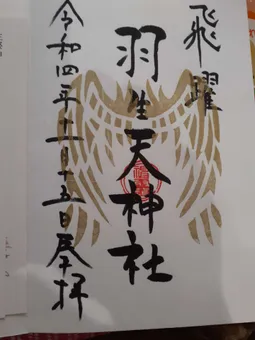 飛躍
羽生天神社
令和四年十一月十五日奉拝